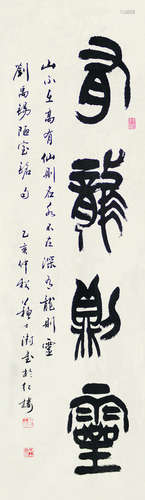 有龍則靈
山不在高有仙則名水不在深有龍則靈
劉禹錫陋室銘句 乙亥仲秋 蘇士澍書於紅樓